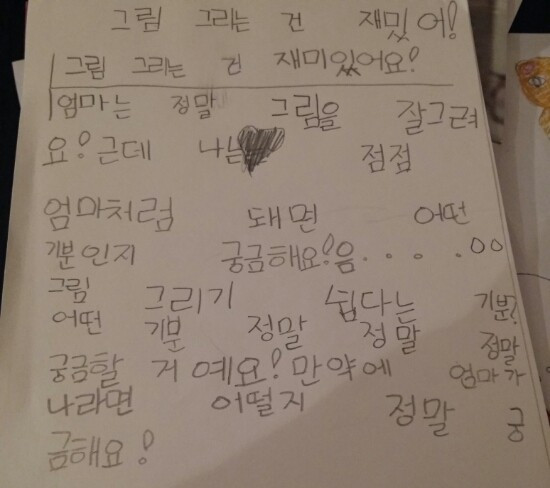 그림 그리는 건 재밌어!
그림 그리는 건 재미있어요!
엄마는 정말 그림을 잘그려
요! 근데 나는 점점
엄마처럼 돼면 어떤
기분인지 궁금해요! 음. . . . .00
그림 그리기 쉽다는 기분?
어떤 기분 정말 정말 정말
궁금할 거 예요! 만약에 엄마가
나라면 어떨지 정말 궁
금해요!